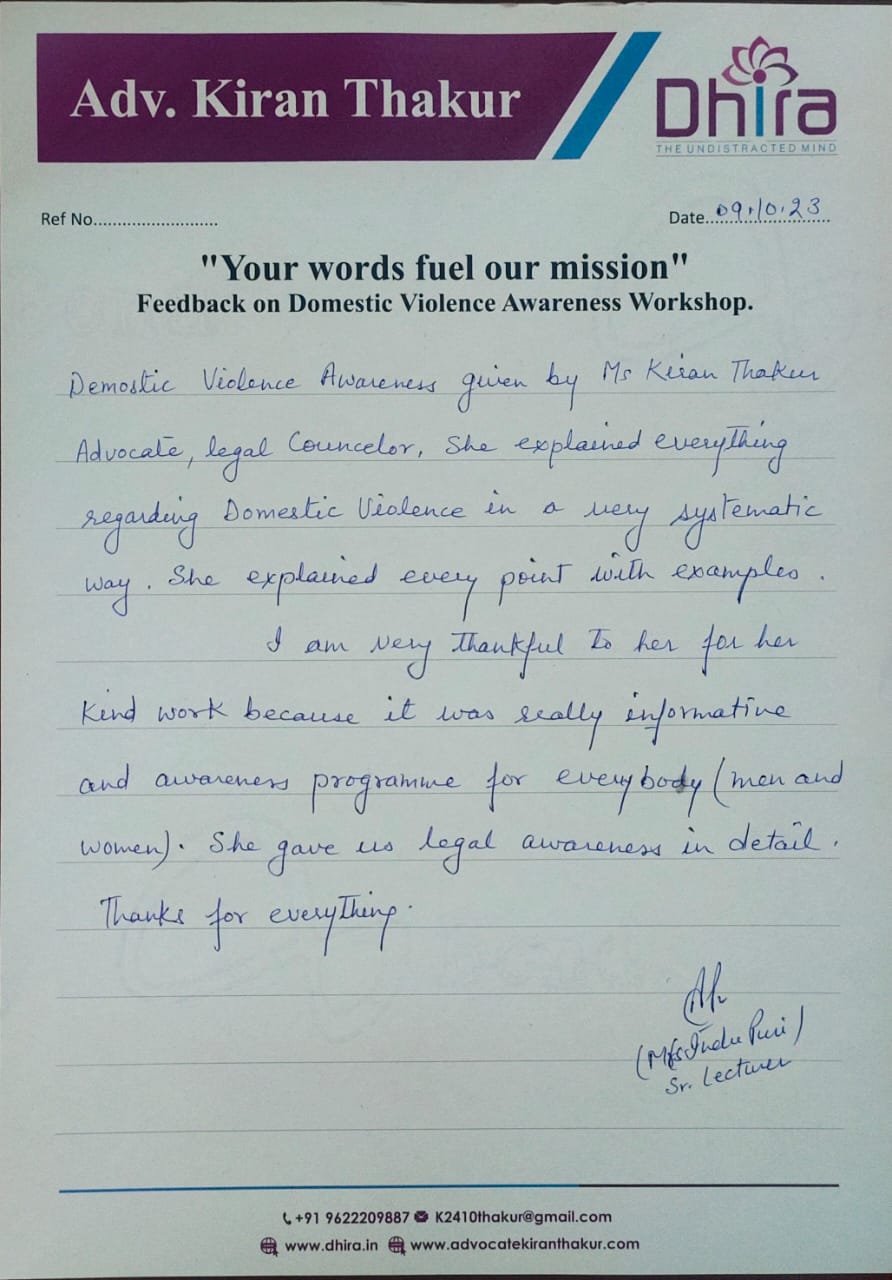 Adv. Kiran Thakur
Dhira
THE UNDISTRACTED MIND
Ref No..........................
Date..09.10.23
"Your words fuel our mission"
Feedback on Domestic Violence Awareness Workshop.
Demostic Violence Awareness given by Ms Kiran Thakur
Advocate, legal Councelor, She explained everything
regarding Domestic Violence in a very systematic
way. She explained every point with examples.
I am very thankful to her for her
kind work because it was really informative
and awareness programme for everybody (men and
women). She gave us legal awareness in detail.
Thanks for everything.
Indu Puri)
Sr. Lecturer
+91 9622209887 K2410thakur@gmail.com
www.dhira.in www.advocatekiranthakur.com